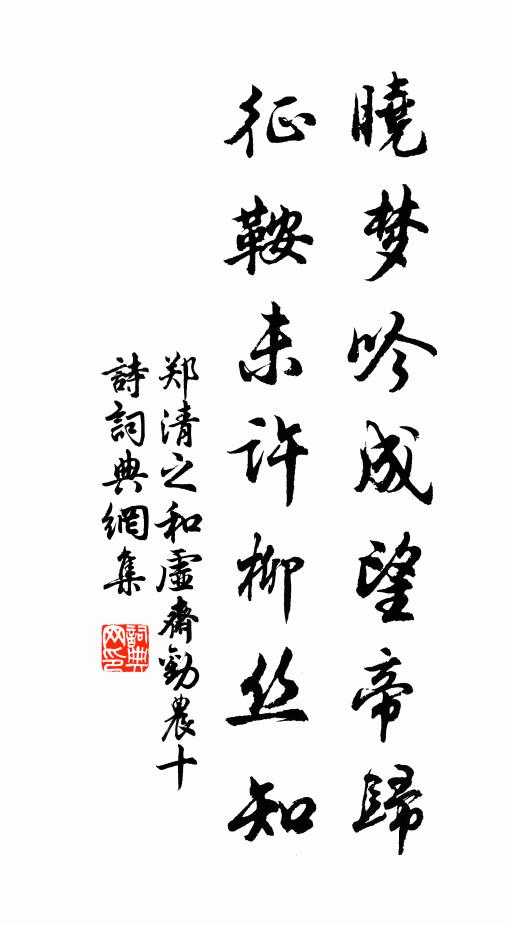 曉梦吟成望帝歸
征鞍未许柳丝知
郑清之和虛齋勸農十
詩詞典網集
詞典